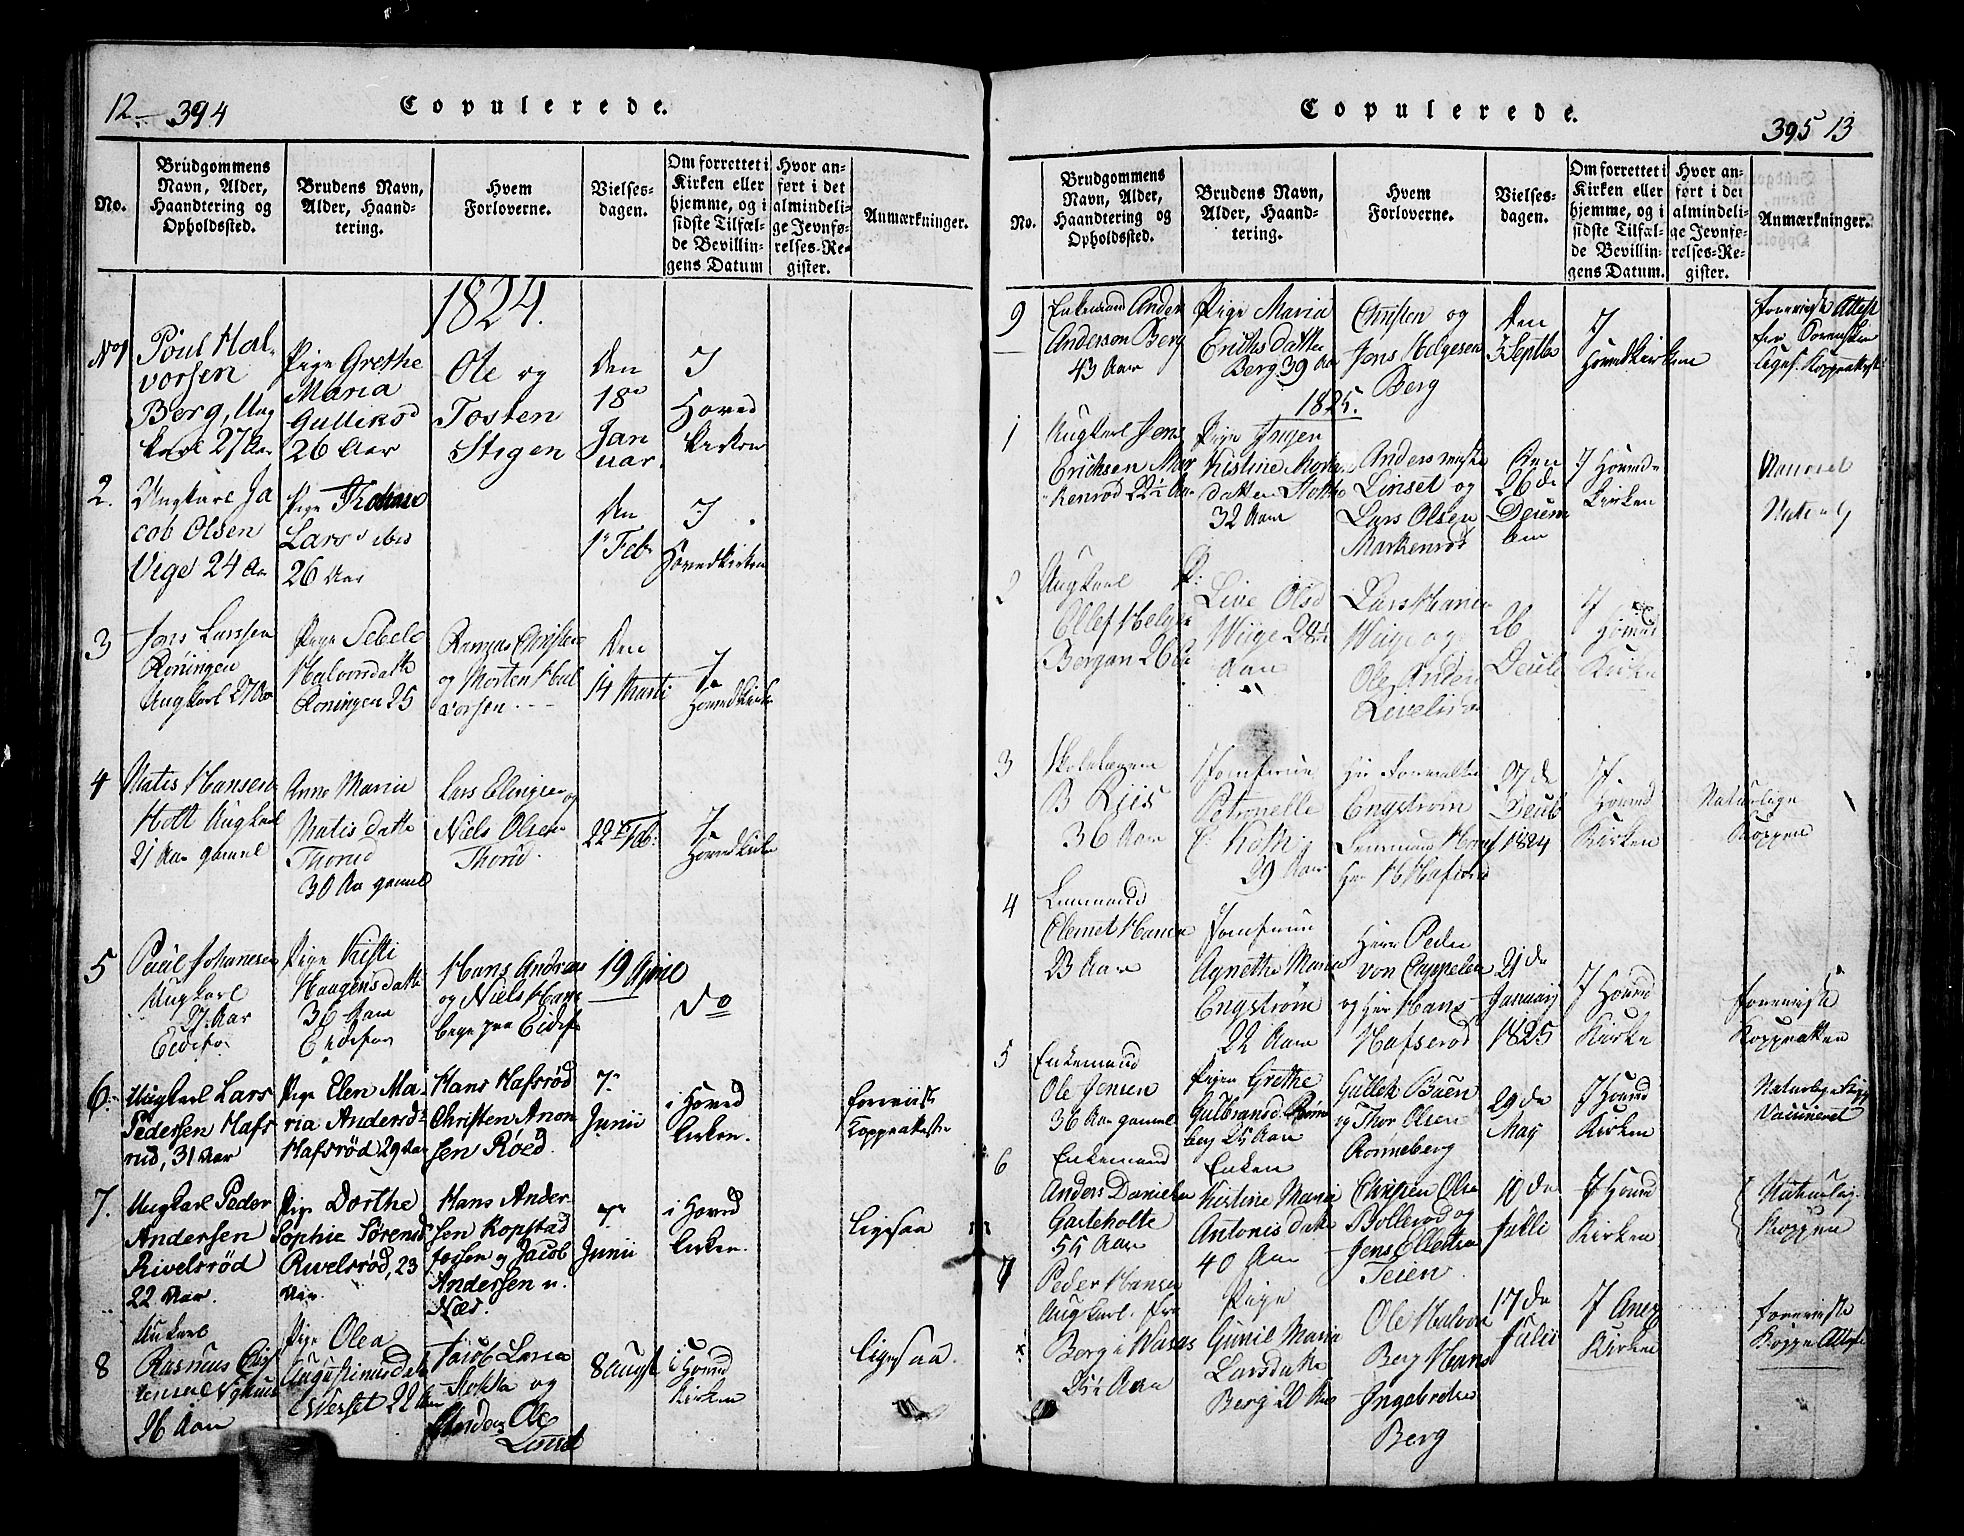 12 394
Copulerede.
No.
Brudgommens
Navn, Alder,
Haandtering og
Opholdssted.
Brudens Navn,
Alder, Haand-
tering.
Hvem
Forloverne.
Vielses-
dagen.
Om forrettet i
Kirken eller
hjemme, og i
sidste Tilfæl-
de Bevillin-
gens Datum
Hvor an-
ført i det
almindeli-
ge Jevnfø-
relses-Re-
gister.
Anmærkninger.
1824.
No 1
Poul Hal-
vorsen
Berg, Ung
karl 27 Aar
Pige Grethe
Maria
Gulliksd
26 Aar
Ole og
Tosten
Stigen
den
18de
Jan
uar
I
Hoved
kirken
2.
Ungkarl Ja
cob Olsen
Vige 24 Aar
Pige
Larsd ibid
26 Aar
den
1e Feb
I
Hovedkirken
3
Jens Larssen
Roningen
Ungkarl 27 Aar
Pige Sebele
Halvorsdatter
Roningen 25
Rasmus Christen
og Morten Hal
vorsen
den
14 Marti
I
Hovedkirke
4
Matis Hansen
Holt Ungkarl
21 Aar gamel
Anne Maria
Matis datter
Thorud
30 Aar gamel
Lars og
Niels Olsen
Thorud.
22de Feb:
I
Hovedkirke
5
Paul Johannesen
Ungkarl
27 Aar
Pige Kisti
Haagensdatter
36 Aar
Hans Andreas
og Niels Hans
19 April
do
6.
Ungkarl Lars
Pedersen Hafs
rud, 31 Aar
Pige Elen Ma-
ria Andersd:
Hafsrød 29 Aar
Hans Hafsrød
Christen Anon
sen Röed.
7de
Junii
i Hoved
kirken.
foreviist
Koppeatteste
7.
Ungkarl Peder
Andersen
Rivelsrød
22 Aar.
Pige Dorthe
Sophie Sørensd
Rivelsrød, 23
Aar.
Hans Ander-
sen Kopstad
og Jacob
Andersen v.
Næs.
7de
Junii
i Hoved
kirken.
ligesaa
8
Ungkarl
Rasmus
26 Aar
Pige Olea
Augustinusdatter
22 Aar
Jacob
og
Anders Ole
8 August
i Hoved
Kirken
ligesaa.
Copulerede.
395 13
No.
Brudgommens
Navn, Alder,
Haandtering og
Opholdssted.
Brudens Navn,
Alder, Haand-
tering.
Hvem
Forloverne.
Vielses-
dagen.
Om forrettet i
Kirken eller
hjemme, og i
sidste Tilfæl-
de Bevillin-
gens Datum.
Hvor an-
ført i det
almindeli-
ge Jevnfø-
relses-Re-
gister.
Anmærkninger.
9
Enkemand Anders
Anderson Berg
43 Aar
Pige Maria
Erichsdatter
Berg 39 Aar
Christen og
Jens Helgesen
Berg
den
5 Septbr
I
Hovedkirken
foreviiste Attest
1825.
1
Ungkarl Jens
Erichsen Mar
kenrød 22½ Aar
Pige Inger
Kistine Morten
datter Stokke
32 Aar
Anders
Linset og
Lars Olsen
Markenrød
den
26 de
Decem
ber
I Hovede
kirken
2
Ungkarl
Ellef Helge
Bergan 26 Aar
P:
Live Olsd
Wiige 24½
Aar
Lars Hansen
Wiige og
Ole Anders
26
Decbr
I
Hoved
Kirke
3
Skolelærer
B Riis
36 Aar
Jomfrue
Petronelle
C. Koth
39 Aar
Engstrøm
27 de
Decbr
1824
I
Hoved
Kirken
Naturlige
Koppen
4
Lensmand
Clemet Hansen
23 Aar
Jomfrue
Agnethe Maria
Engstrøm
22 Aar
Herr Peder
von Cappelen
og Herr Hans
Hafserød
21 de
Januarj
1825
I Hoved
Kirke
foreviiste
Koppeatten
5
Enkemand
Ole Jensen
36 Aar gamel
Pigen Grethe
Gulbransd. Rønne
berg 25 Aar
Gullek Buen
og Thor Olsen
Ronneberg
29 de
May
I Hoved
Kirken
Vacineret
6
Enkemand
Anders Danielsen
Gasteholte
55 Aar
Enken
Kistine Maria
Antonis datter
40 Aar
Christen Olsen
Bollerød og
Jens Ellefsen
Teien
10 de
Julli
I Hoved
Kirken
Naturlig
Koppen
7
Peder Hansen
Ungkarl fra
Berg i
25½ Aar
Pige
Gunil Maria
Larsdatter
Berg 20 Aar
Ole Halvor
Berg Hans
Ingebretsen
Berg
17 de
Julii
I Anex
Kirken
foreviiste
Koppe Attest